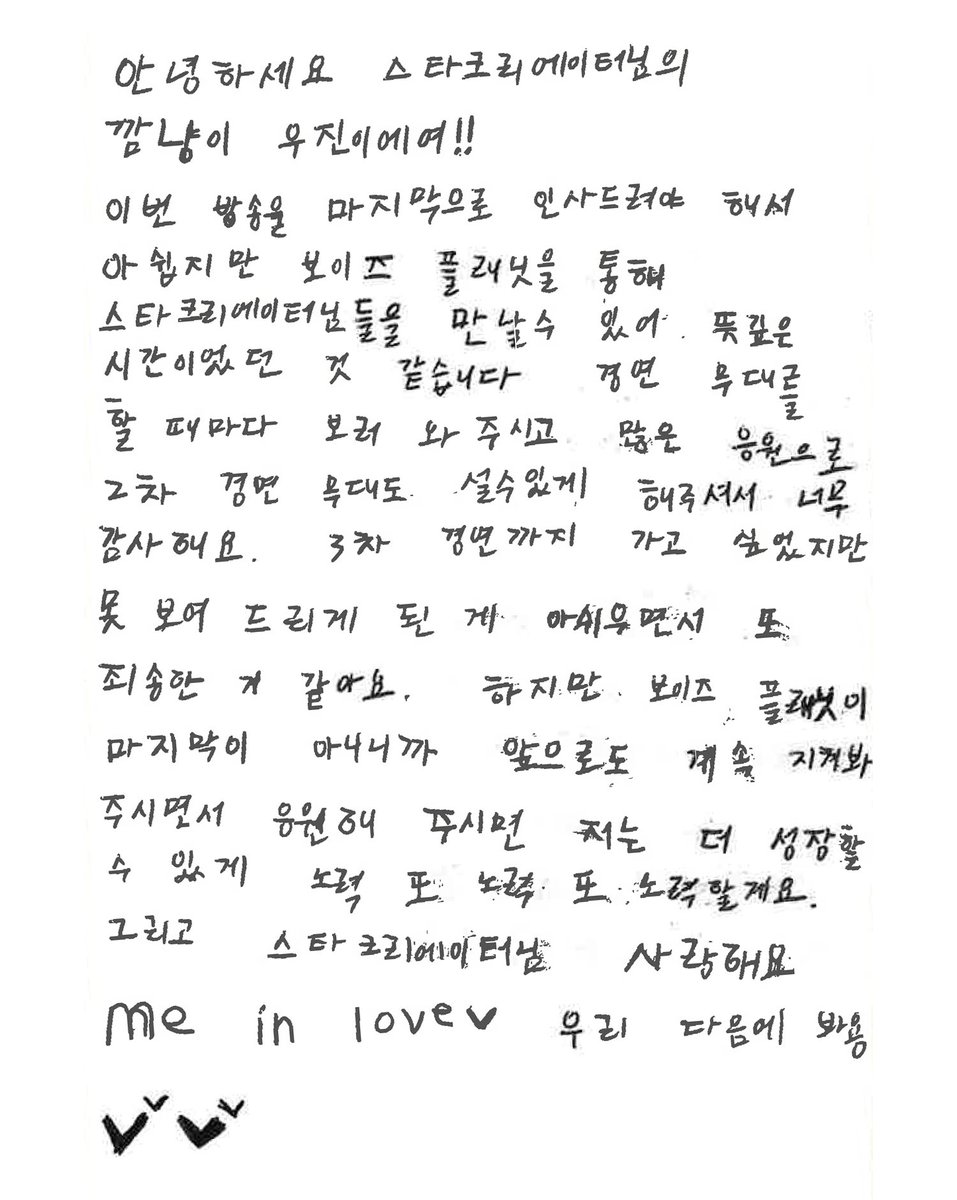 안녕하세요 스타크리에이터님의
깜냥이 우진이에여!!
이번 방송을 마지막으로 인사드려야 해서
아쉽지만 보이즈 플래닛을 통해
스타크리에이터님들을 만날수 있어 뜻깊은
시간이었던 것 같습니다 경연 무대를
할 때마다 보러 와주시고 많은 응원으로
2차 경연 무대도 설수있게 해주셔서 너무
감사해요. 3차 경연까지 가고 싶었지만
못 보여 드리게 된 게 아쉬우면서 또
죄송한 거 같아요. 하지만 보이즈 플래닛이
마지막이 아니니까 앞으로도 계속 지켜봐
주시면서 응원해 주시면 저는 더 성장할
수 있게 노력 또 노력 또 노력할게요.
그리고 스타크리에이터님 사랑해요
me in love 우리 다음에 봐용